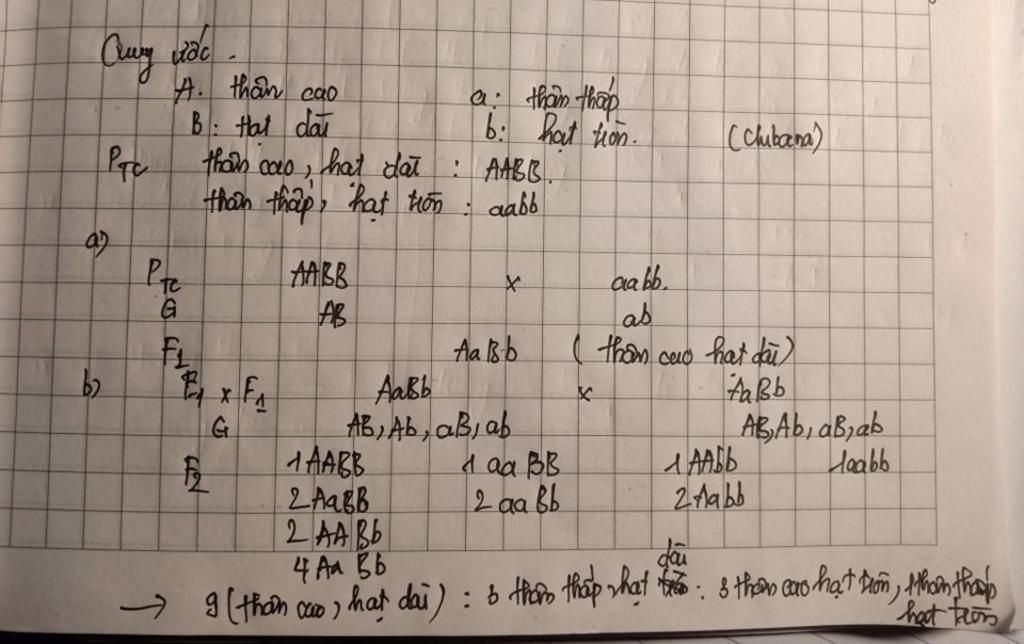 Quy ước.
A. thân cao a: thân thấp
B: Hạt dài b: hạt tròn. (Chubana)
PTC thân cao, hạt dài : AABB.
thân thấp, hạt tròn : aabb
a)
PTC AABB x aabb.
G AB ab
F1 AaBb ( thân cao hạt dài)
b) F1 x F1 AaBb x AaBb
G AB, Ab, aB, ab AB, Ab, aB, ab
F2 1 AABB 1 aaBB 1 AAbb 1aabb
2 AaBB 2 aaBb 2 Aabb
2 AABb
4 AaBb
dài
→ 9 (thân cao, hạt dài) : 3 thân thấp, hạt : 3 thân cao hạt tròn, 1 thân thấp
hạt tròn